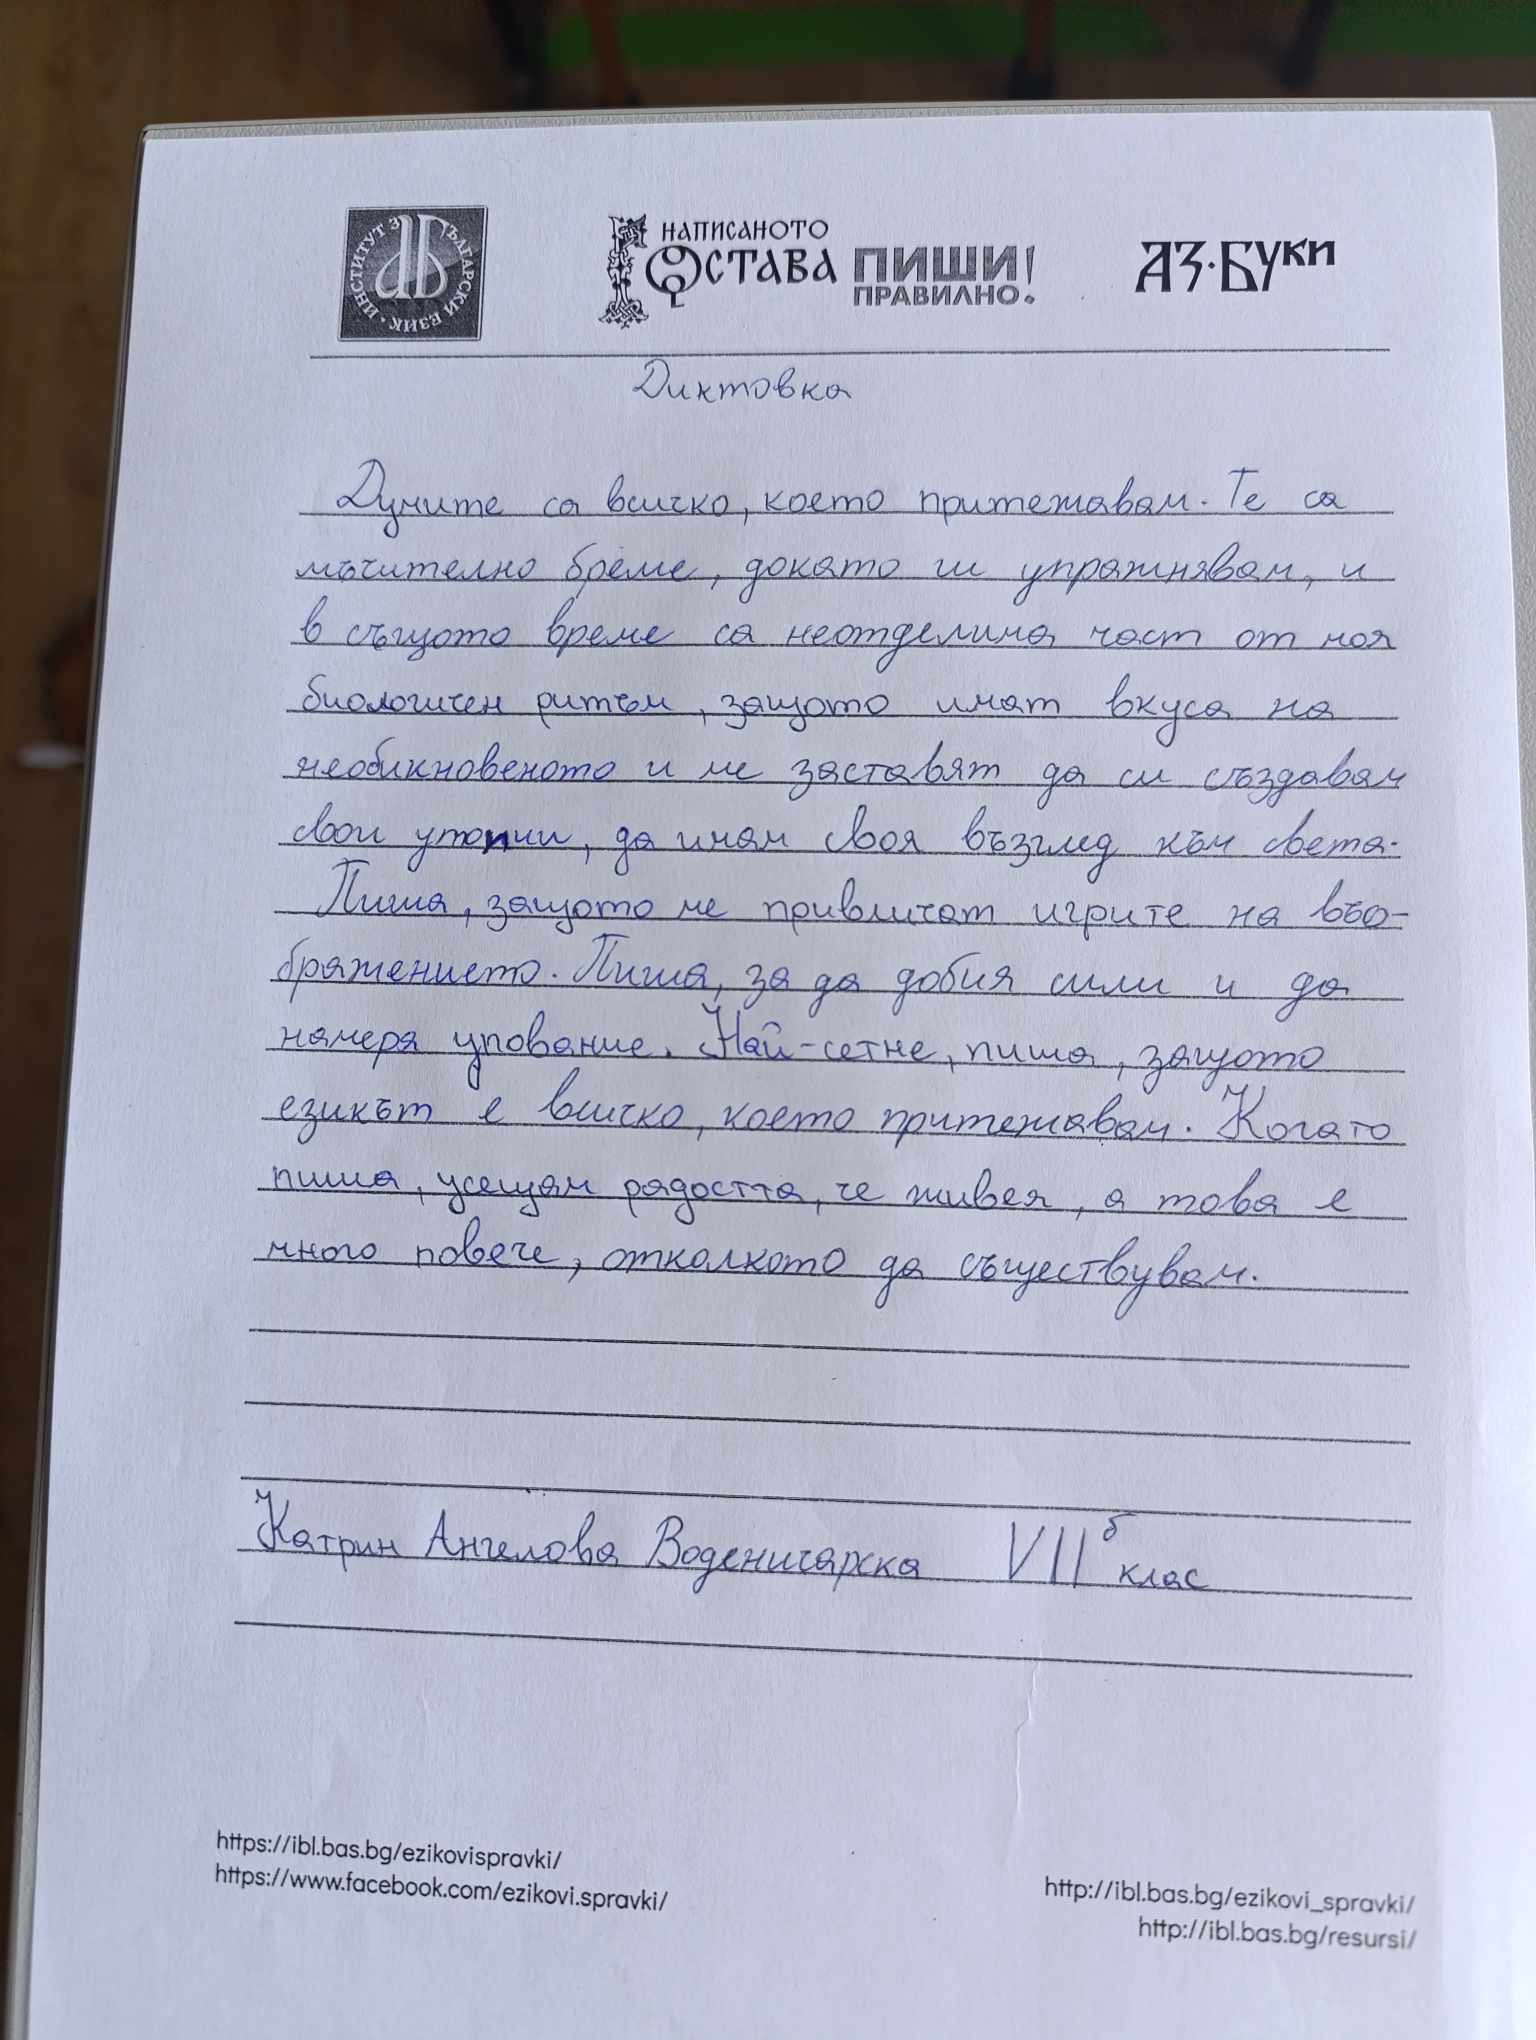 ИНСТИТУТ ЗА БЪЛГАРСКИ ЕЗИК
НАПИСАНОТО
ОСТАВА ПИШИ!
ПРАВИЛНО.
АЗ·БУКИ
Диктовка
Думите са всичко, което притежавам. Те са
мъчително бреме, докато ги упражнявам, и
в същото време са неотделима част от моя
биологичен ритъм, защото имат вкуса на
необикновеното и ме заставят да си създавам
свои утопии, да имам своя възглед към света.
Пиша, защото ме привличат игрите на въо-
бражението. Пиша, за да добия сили и да
намеря упование. Най-сетне, пиша, защото
езикът е всичко, което притежавам. Когато
пиша, усещам радостта, че живея, а това е
много повече, отколкото да съществувам.
Катрин Ангелова Воденичарска VII б клас
https://ibl.bas.bg/ezikovispravki/
https://www.facebook.com/ezikovi.spravki/
http://ibl.bas.bg/ezikovi_spravki/
http://ibl.bas.bg/resursi/